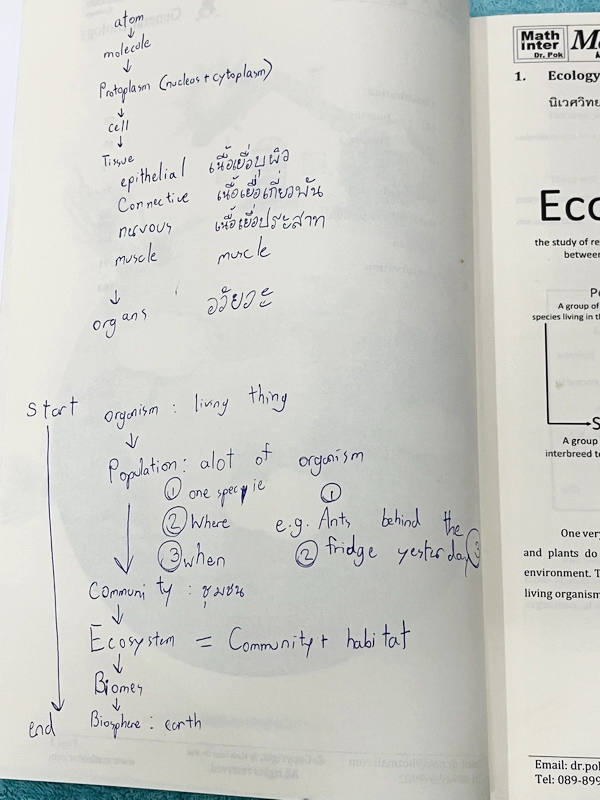 atom
↓
molecule
↓
Protoplasm (nucleus + cytoplasm)
↓
cell
↓
Tissue
epithelial เนื้อเยื่อบุผิว
Connective เนื้อเยื่อเกี่ยวพัน
nervous เนื้อเยื่อประสาท
muscle muscle
↓
organs อวัยวะ
start organism : living thing
↓
Population : alot of organism
① one specie ①
② Where e.g. Ants behind the
③ when ② fridge yesterday ③
Community : ชุมชน
↓
Ecosystem = Community + habitat
↓
Biomes
↓
end Biosphere : earth
Math
Inter
Dr. Pok
1. Ecology
นิเวศวิทย
Eco
the study of re
between
Po
A group of
species living in th
S
A group
interbreed to
One very
and plants do
environment. T
living organism
Email: dr.pok
Tel: 089-899